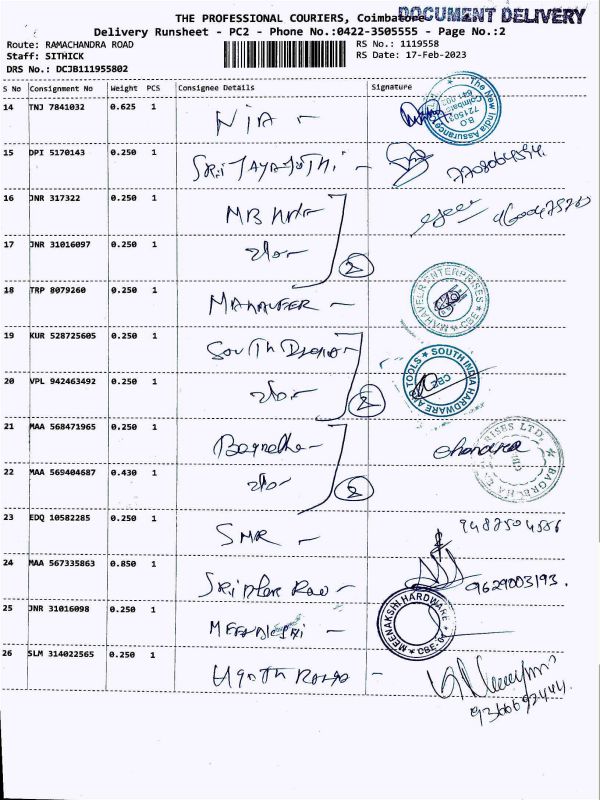 THE PROFESSIONAL COURIERS, Coimbatore
DOCUMENT DELIVERY
Delivery Runsheet - PC2 - Phone No.:0422-3505555 - Page No.:2
Route: RAMACHANDRA ROAD
RS No.: 1119558
Staff: SITHICK
RS Date: 17-Feb-2023
DRS No.: DCJB111955802
S No Consignment No Weight PCS Consignee Details Signature
14 TNJ 7841032 0.625 1 NIA -
The New India Assurance
B.O.
721502
Coimbatore
641 002
15 DPI 5170143 0.250 1
16 JNR 317322 0.250 1 MB
17 JNR 31016097 0.250 1
2
18 TRP 8079260 0.250 1 MAHAVEER -
MAHAVEER ENTERPRISES CBE
19 KUR 528725605 0.250 1 South
SOUTH INDIA HARDWARE AND TOOLS CBE
20 VPL 942463492 0.250 1
2
21 MAA 568471965 0.250 1 Bagrecha - Chandra
22 MAA 569404687 0.430 1
2
23 EDQ 10582285 0.250 1 SMR - 9487504556
24 MAA 567335863 0.850 1 Sridhar Rao - 9629003193.
25 JNR 31016098 0.250 1 MEENAKSHI -
MEENAKSHI HARDWARE CBE
26 SLM 314022565 0.250 1
9366692444.